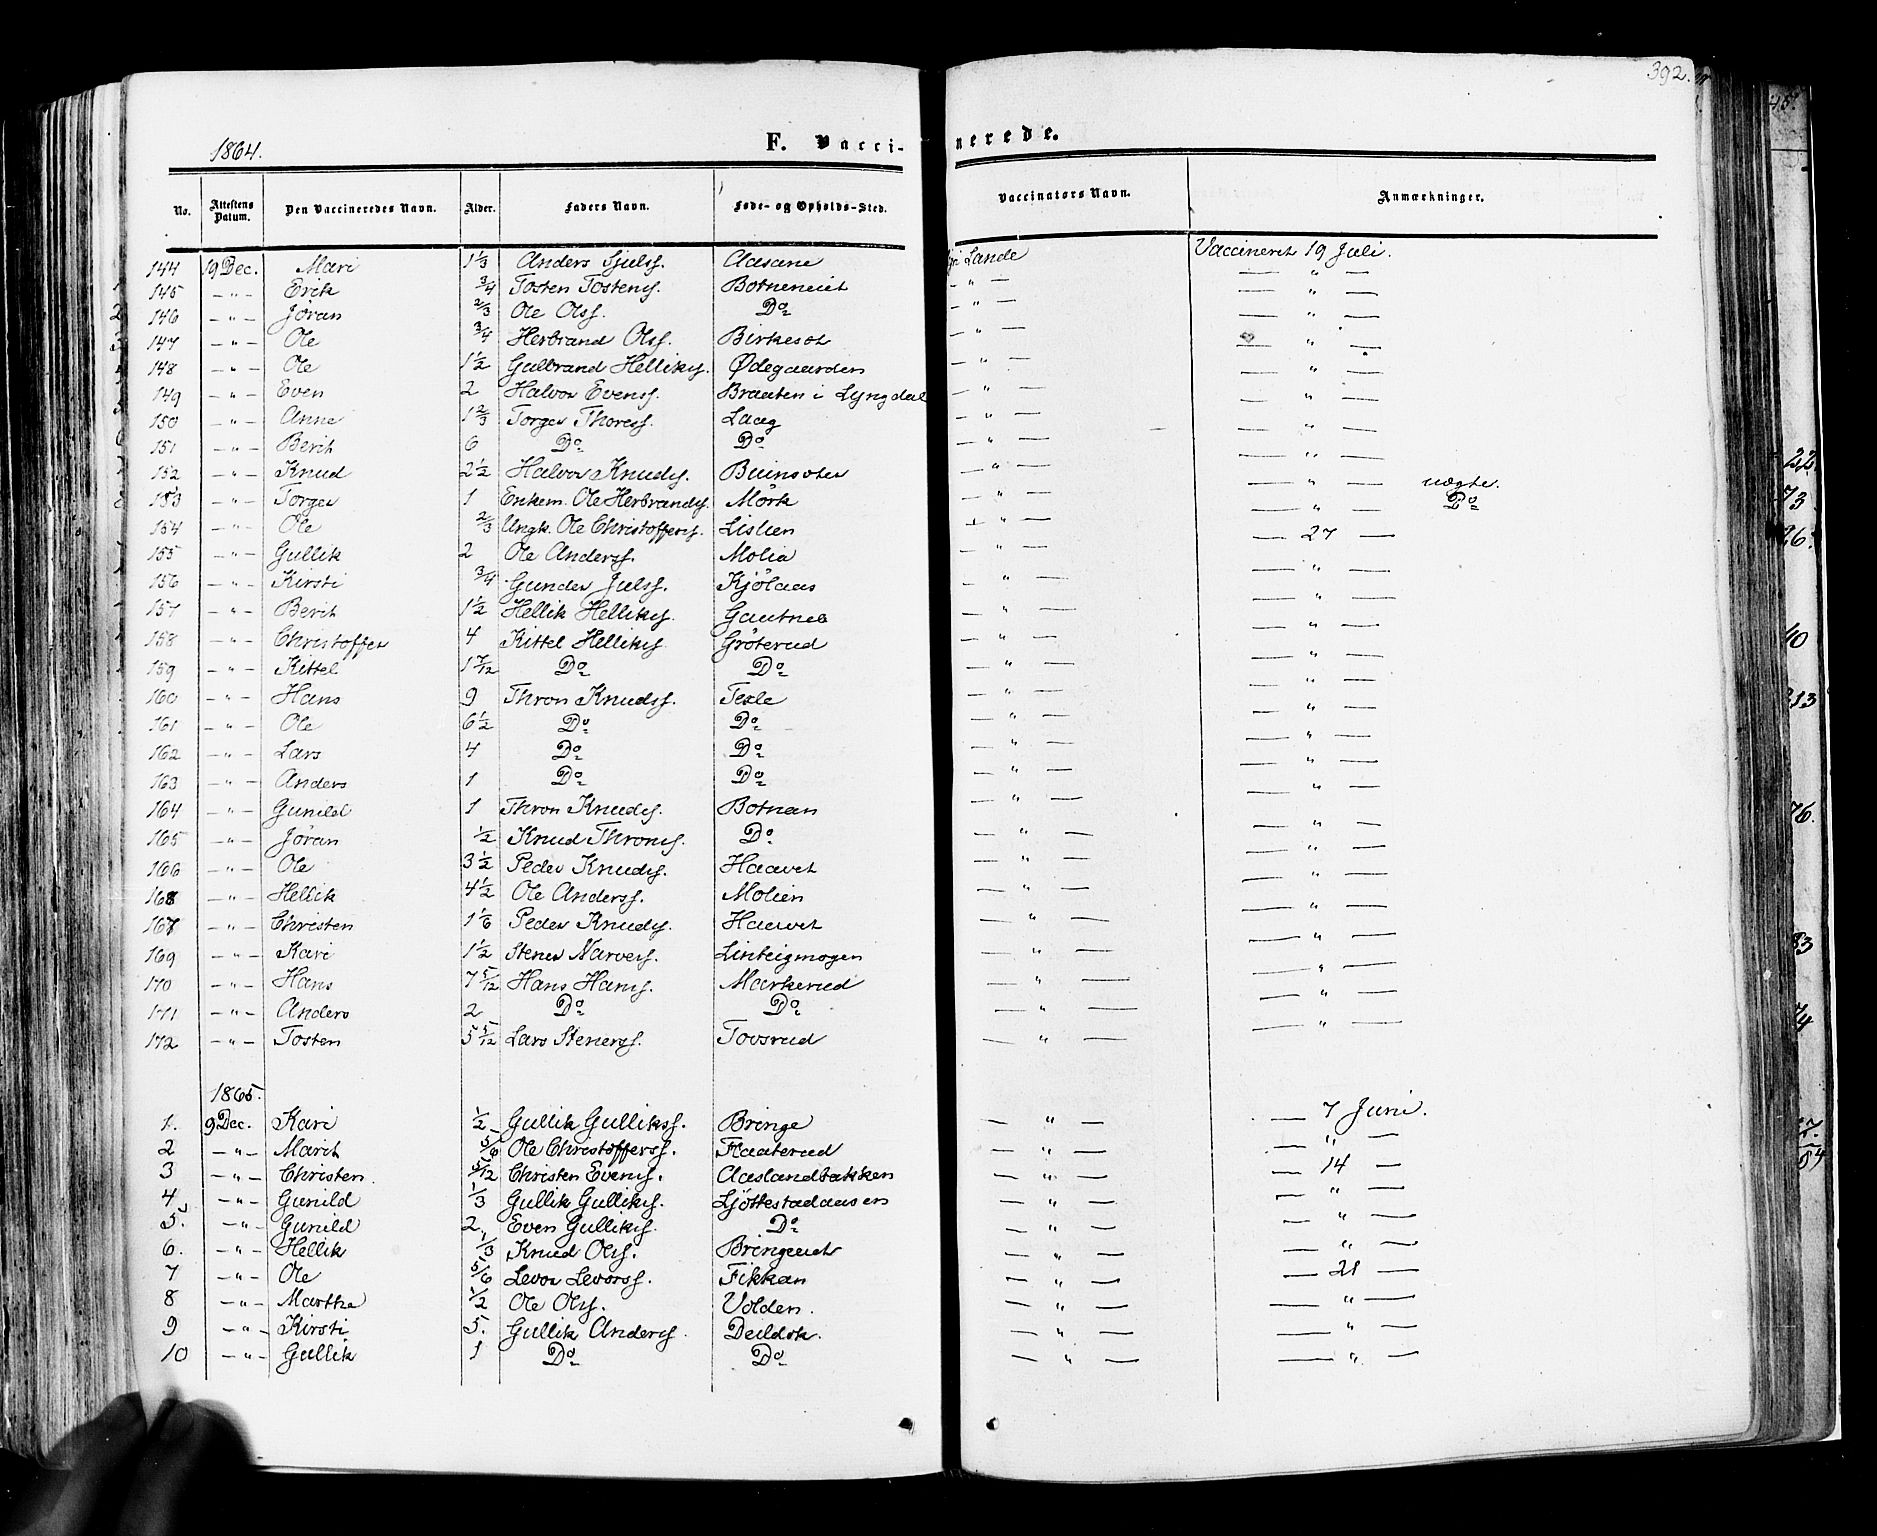 392.
1864. F. Vaccinerede.
No. Attestens Datum. Den Vaccineredes Navn. Alder. Faders Navn. Føde- og Opholds-Sted. Vaccinators Navn. Anmærkninger.
144 19 Dec. Mari 1 1/3 Anders Sjulss. Aasane Lande Vaccineret 19 Juli.
145 — " — Erik 3/4 Tosten Tostens. Botneneiet — " — — " —
146 — " — Jøran 2/3 Ole Olss. Do — " — — " —
147 — " — Ole 3/4 Herbrand Olss. Birkesot — " — — " —
148 — " — Ole 1 1/2 Gulbrand Helliks. Ødegaarden — " — — " —
149 — " — Even 2 Halvor Evenss. Braaten i Lyngdal — " — — " —
150 — " — Anne 1 2/3 Torger Thoress. Laag — " — — " —
151 — " — Berit 6 Do Do — " — — " —
152 — " — Knud 2 1/2 Halvor Knuds. — " — — " —
153 — " — Torger 1 Enkem. Ole Herbrands. Mörk — " — — " — uægte.
154 — " — Ole 2/3 Ungk. Ole Christoffers. Lislien — " — — " — Do
155 — " — Gullik 2 Ole Anderss. Molia — " — — 27 —
156 — " — Kirsti 3/4 Gunder Julss. Kjölaas — " — — " —
157 — " — Berit 1 1/2 Hellik Helliks. Gautnes — " — — " —
158 — " — Christoffer 4 Kittel Helliks. Gröterud — " — — " —
159 — " — Kittel 1 7/12 Do Do — " — — " —
160 — " — Hans 9 Thron Knudss. Texle — " — — " —
161 — " — Ole 6 1/2 Do Do — " — — " —
162 — " — Lars 4 Do Do — " — — " —
163 — " — Anders 1 Do Do — " — — " —
164 — " — Gunild 1 Thron Knuds. Botnan — " — — " —
165 — " — Jøran 1/2 Knud Throns. Do — " — — " —
166 — " — Ole 3 1/2 Peder Knuds. Haavet — " — — " —
168 — " — Hellik 4 1/2 Ole Anderss. Molien — " — — " —
167 — " — Christen 1 1/6 Peder Knuds. Haavet — " — — " —
169 — " — Kari 1 1/2 Stener Narvess. Linteigmogen — " — — " —
170 — " — Hans 7 5/12 Hans Hans. Markerud — " — — " —
171 — " — Anders 2 Do Do — " — — " —
172 — " — Tosten 5 5/12 Lars Steners. Tovsrud — " — — " —
1865.
1. 9 Dec. Kari 1/2 Gullik Gullikss. Bringe — " — — 7 Juni.
2 — " — Marit 5/6 Ole Christofferss. Flaaterud — " — — " —
3 — " — Christen. 5/12 Christen Evens. Aaslandbakken — " — — 14 —
4 — " — Gunild 1/3 Gullik Gulliks. Ljöttestadaasen — " — — " —
5. — " — Gunild 2 Even Gulliks. Do — " — — " —
6. — " — Hellik 1/3 Knud Olss. Bringeeiet — " — — " —
7 — " — Ole 5/6 Levor Levorss. Fikkan — " — — 21 —
8 — " — Marthe 1/2 Ole Olss. Volden. — " — — " —
9 — " — Kirsti 5. Gullik Anderss. — " — — " —
10 — " — Gullik 1 Do Do — " — — " —